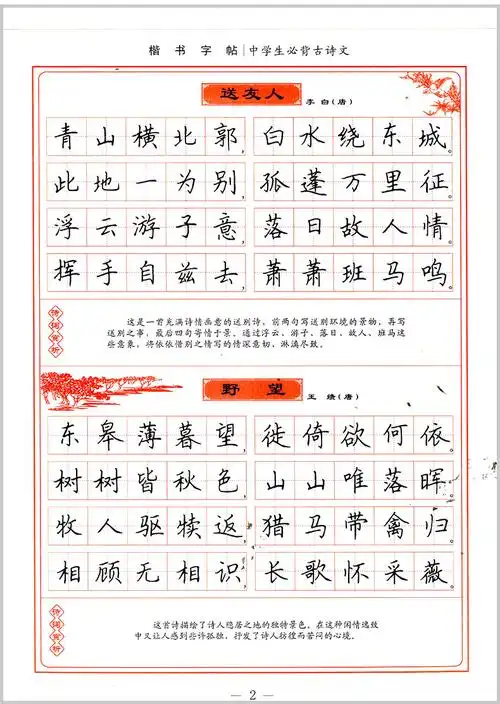 楷书字帖|中学生必背古诗文
送友人 李白(唐)
青山横北郭,白水绕东城。
此地一为别,孤蓬万里征。
浮云游子意,落日故人情。
挥手自兹去,萧萧班马鸣。
诗词赏析
这是一首充满诗情画意的送别诗,前两句写送别环境的景物,再写
送别之事,最后四句寄情于景。通过浮云、游子、落日、故人、班马这
些意象,将依依惜别之情写的情深意切、淋漓尽致。
野望 王绩(唐)
东皋薄暮望,徙倚欲何依。
树树皆秋色,山山唯落晖。
牧人驱犊返,猎马带禽归。
相顾无相识,长歌怀采薇。
诗词赏析
这首诗描绘了诗人隐居之地的独特景色。在这种闲情逸致
中又让人感到些许孤独,抒发了诗人彷徨而苦闷的心境。
— 2 —